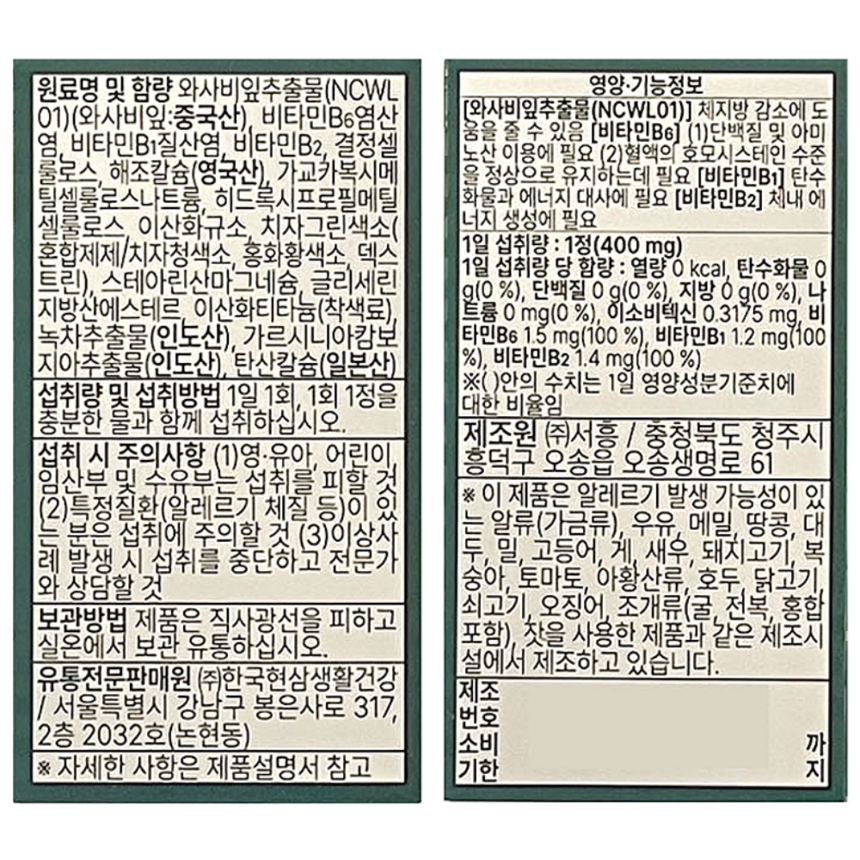 원료명 및 함량 와사비잎추출물(NCWL
01)(와사비잎:중국산), 비타민B6염산
염, 비타민B1질산염, 비타민B2, 결정셀
룰로스, 해조칼슘(영국산), 가교카복시메
틸셀룰로스나트륨, 히드록시프로필메틸
셀룰로스, 이산화규소, 치자그린색소(
혼합제제/치자청색소, 홍화황색소, 덱스
트린), 스테아린산마그네슘, 글리세린
지방산에스테르, 이산화티타늄(착색료),
녹차추출물(인도산), 가르시니아캄보
지아추출물(인도산), 탄산칼슘(일본산)
섭취량 및 섭취방법 1일 1회, 1회 1정을
충분한 물과 함께 섭취하십시오.
섭취 시 주의사항 (1)영·유아, 어린이,
임산부 및 수유부는 섭취를 피할 것
(2)특정질환(알레르기 체질 등)이 있
는 분은 섭취에 주의할 것 (3)이상사
례 발생 시 섭취를 중단하고 전문가
와 상담할 것
보관방법 제품은 직사광선을 피하고
실온에서 보관 유통하십시오.
유통전문판매원 ㈜한국현삼생활건강
/ 서울특별시 강남구 봉은사로 317,
2층 2032호(논현동)
※ 자세한 사항은 제품설명서 참고
영양·기능정보
[와사비잎추출물(NCWL01)] 체지방 감소에 도
움을 줄 수 있음 [비타민B6] (1)단백질 및 아미
노산 이용에 필요 (2)혈액의 호모시스테인 수준
을 정상으로 유지하는데 필요 [비타민B1] 탄수
화물과 에너지 대사에 필요 [비타민B2] 체내 에
너지 생성에 필요
1일 섭취량 : 1정(400 mg)
1일 섭취량 당 함량 : 열량 0 kcal, 탄수화물 0
g(0 %), 단백질 0 g(0 %), 지방 0 g(0 %), 나
트륨 0 mg(0 %), 이소비텍신 0.3175 mg, 비
타민B6 1.5 mg(100 %), 비타민B1 1.2 mg(100
%), 비타민B2 1.4 mg(100 %)
※( )안의 수치는 1일 영양성분기준치에
대한 비율임
제조원 ㈜서흥 / 충청북도 청주시
흥덕구 오송읍 오송생명로 61
※ 이 제품은 알레르기 발생 가능성이 있
는 알류(가금류), 우유, 메밀, 땅콩, 대
두, 밀, 고등어, 게, 새우, 돼지고기, 복
숭아, 토마토, 아황산류, 호두, 닭고기,
쇠고기, 오징어, 조개류(굴, 전복, 홍합
포함), 잣을 사용한 제품과 같은 제조시
설에서 제조하고 있습니다.
제조
번호
소비 까
기한 지